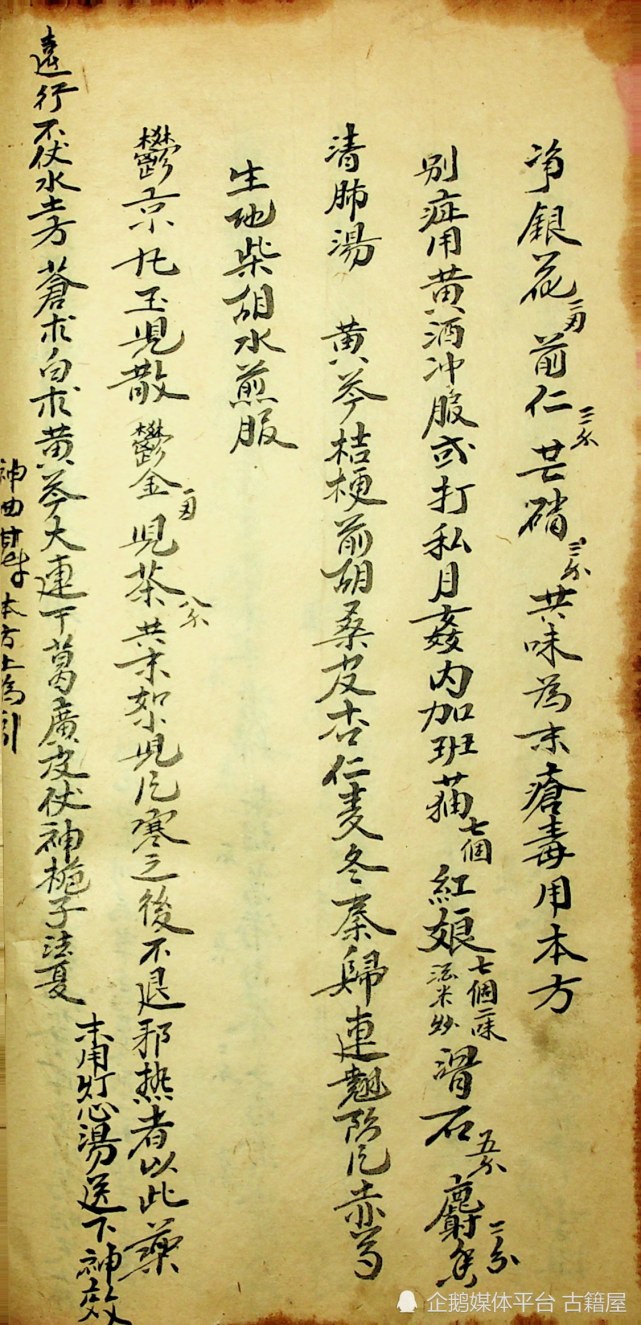 净銀花二两前仁三分芒硝三分共味為末瘡毒用本方
别症用黄酒冲服或打私月姦内加班猫七個紅娘七個二味沾米炒滑石五分麝香二分
清肺湯 黄芩桔梗前胡桑皮杏仁麦冬秦歸連翹防風赤芍
生地柴胡水煎服
鬱京九玉児散 鬱金一两児茶八分共末絮児凡寒之後不退邪热者以此藥
末用灯心湯送下神效
遠行不伏水土方 蒼术白术黄芩大連干葛廣皮伏神梔子法夏
神曲甘草本方土為引
企鹅媒体平台 古籍屋